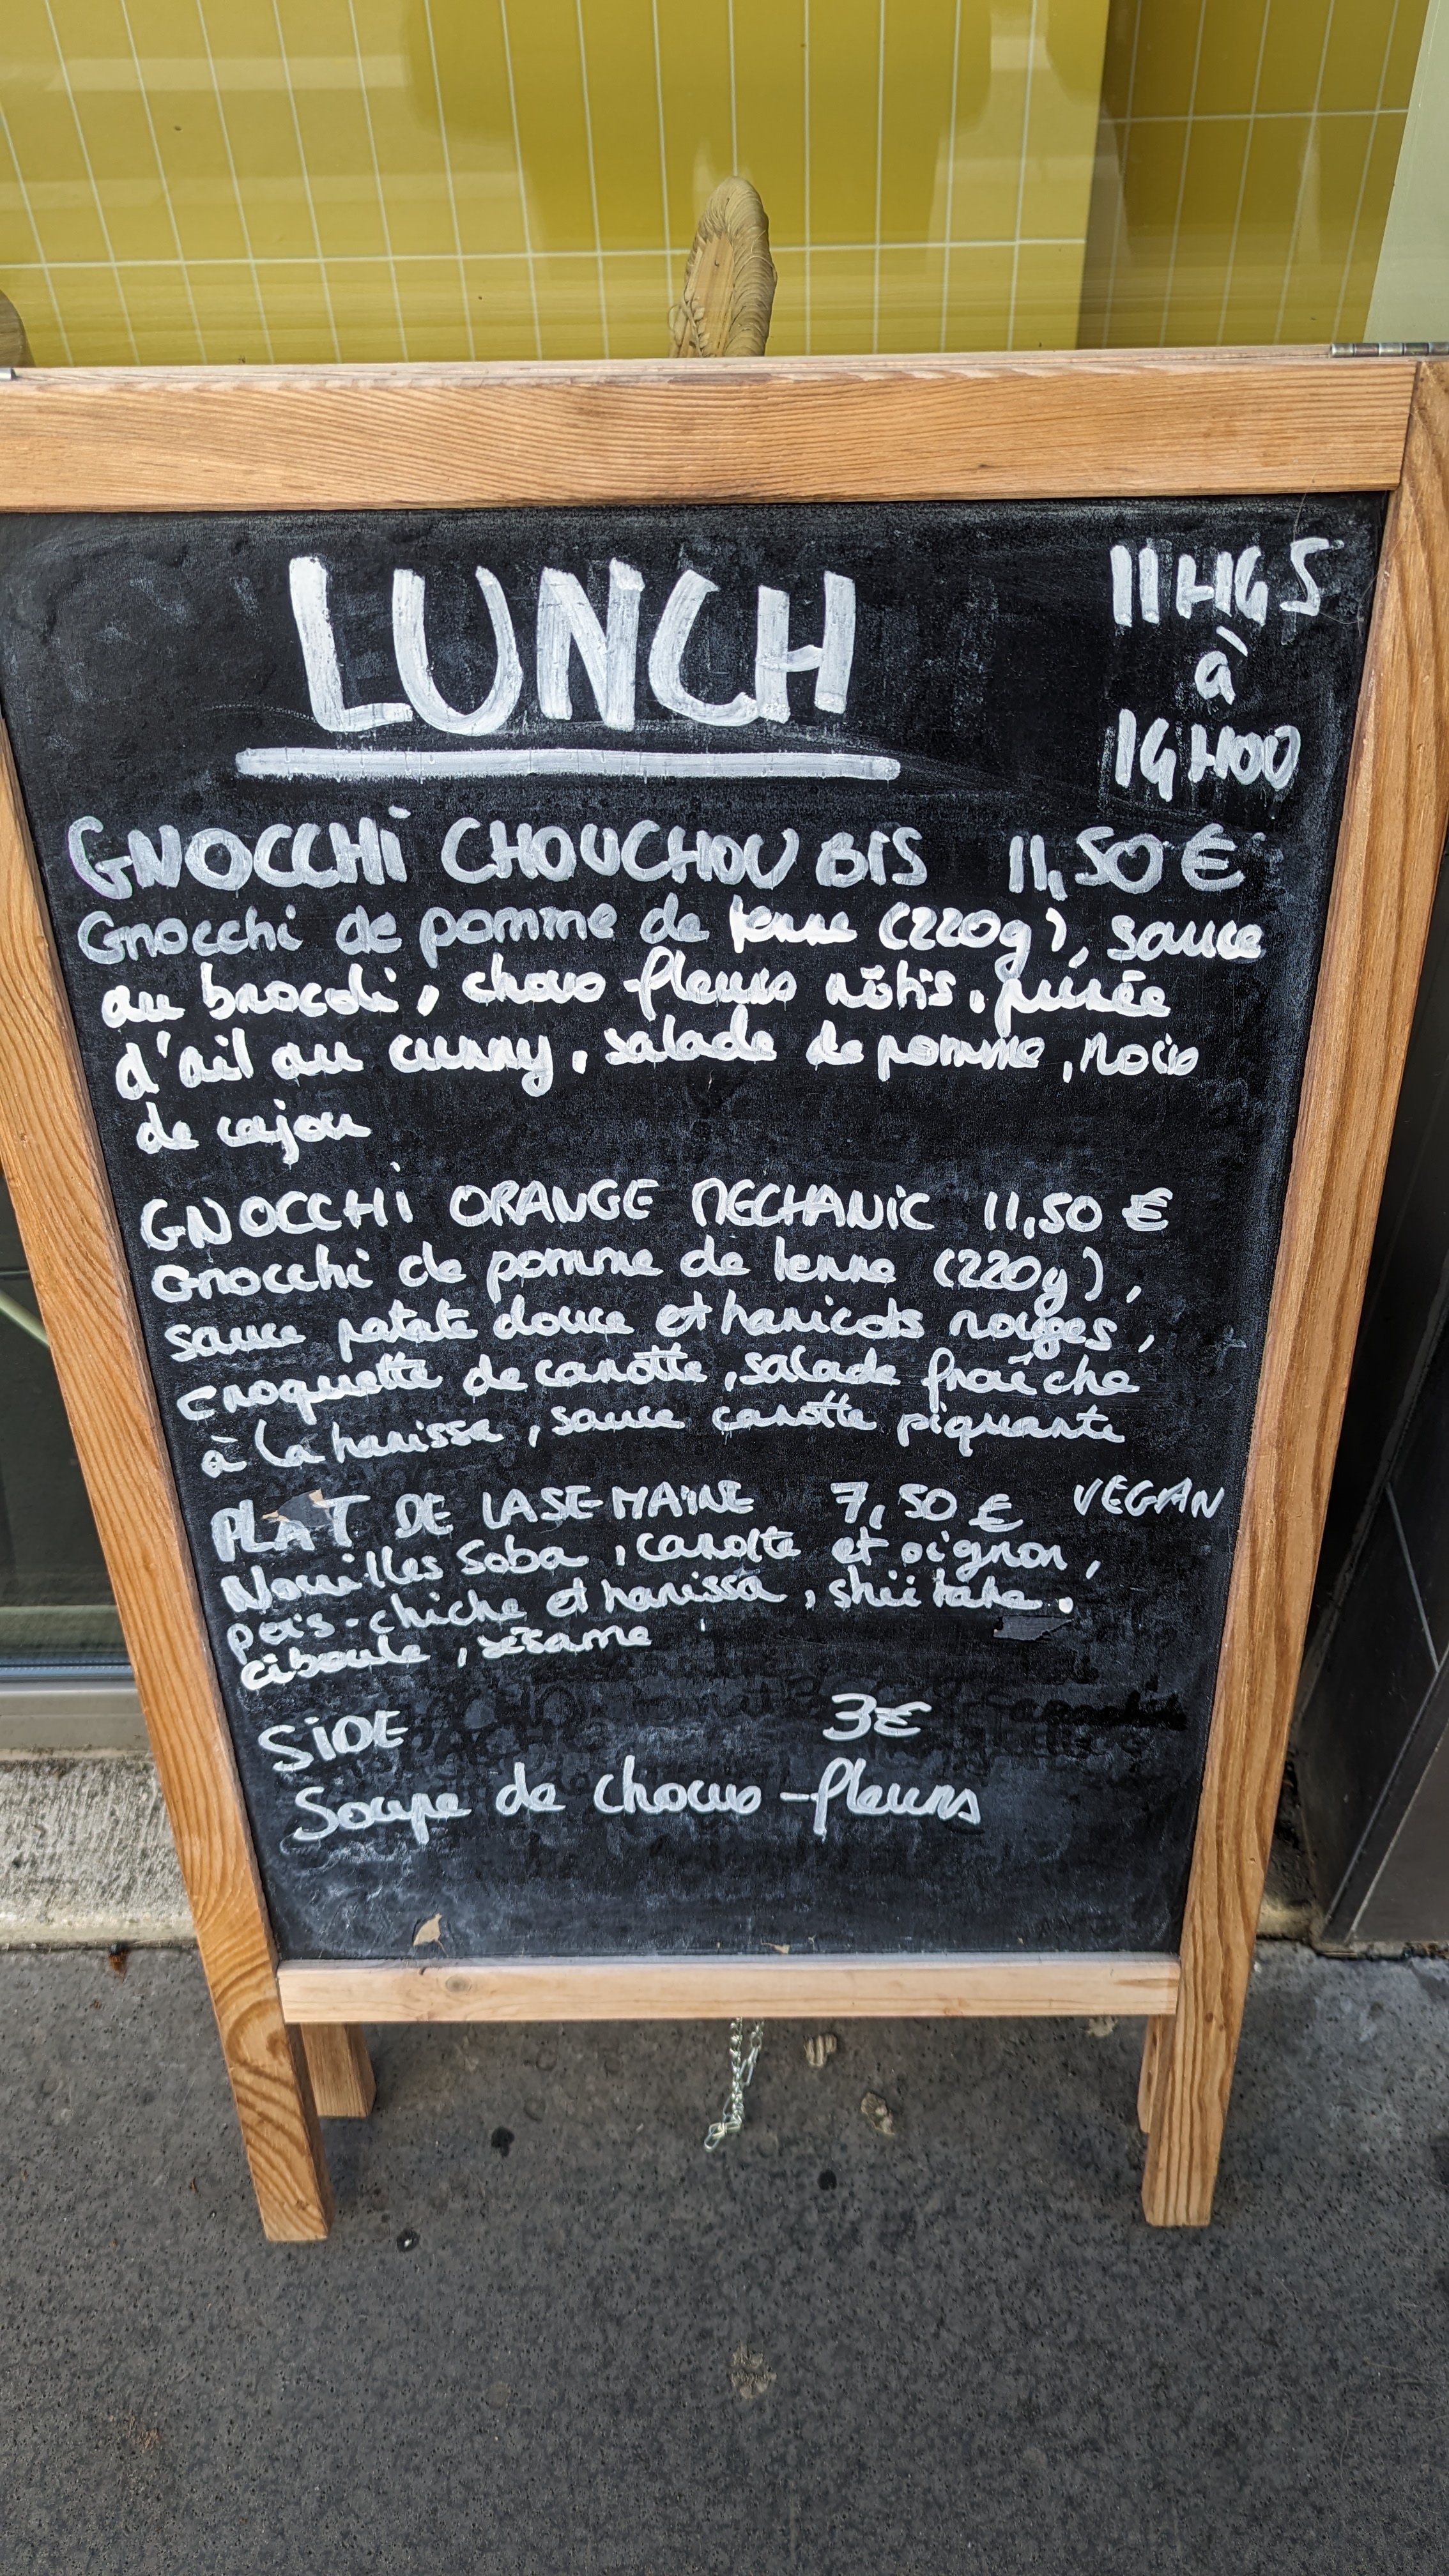 LUNCH
11H45
à
14H00
GNOCCHi CHOUCHOU BIS 11,50 €
Gnocchi de pomme de terre (220g), sauce
au brocoli, choux-fleurs rôtis, purée
d'ail au curry, salade de pomme, noix
de cajou
GNOCCHi ORANGE MECHANiC 11,50 €
Gnocchi de pomme de terre (220g),
sauce patate douce et haricots rouges,
croquette de carotte, salade fraîche
à la harissa, sauce carotte piquante
PLAT DE LA SEMAiNE 7,50 € VEGAN
Nouilles Soba, carotte et oignon,
pois-chiche et harissa, shiitake,
ciboule, sésame
SiDE 3€
Soupe de choux-fleurs